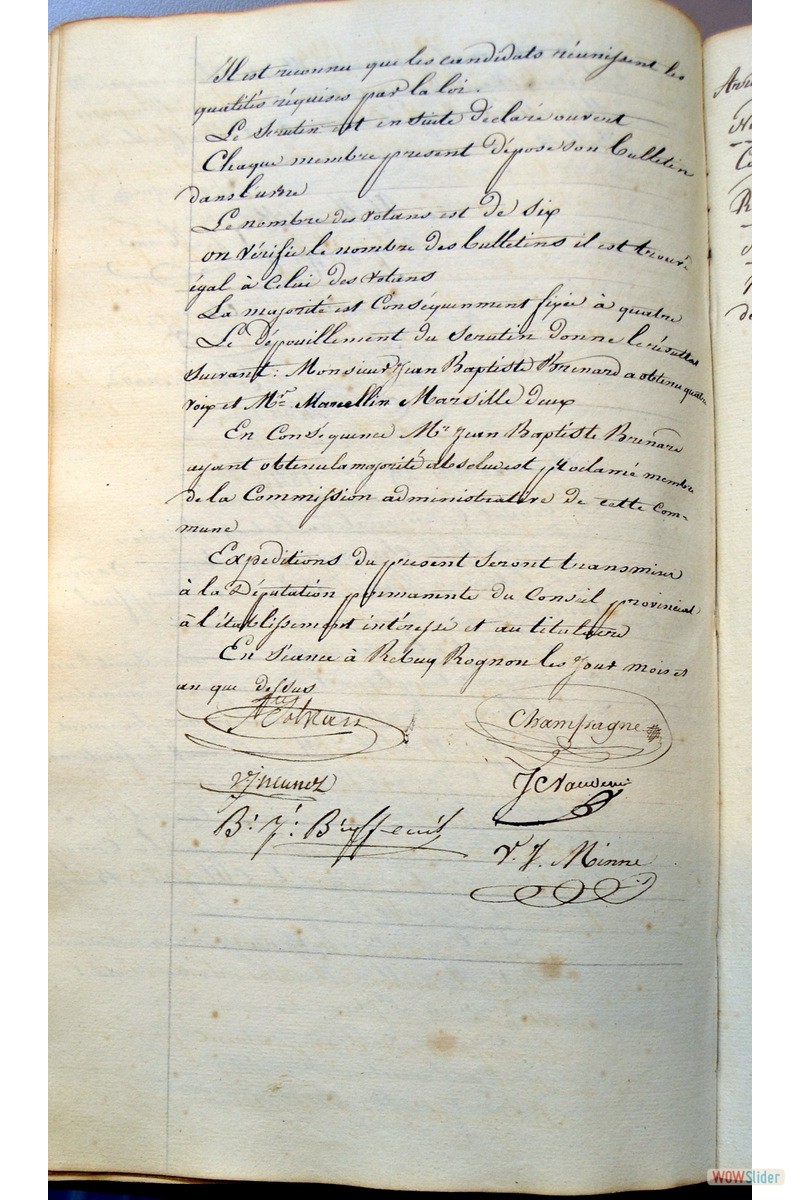 Il est reconnu que les candidats réunissent les
qualités réquises par la loi.
Le scrutin est ensuite déclaré ouvert
Chaque membre present dépose son bulletin
dans l'urne
Le nombre des votans est de six
on vérifie le nombre des bulletins il est trouvé
égal à celui des votans
La majorité est conséquemment fixée à quatre
Le dépouillement du scrutin donne le résultat
suivant: Monsieur Jean Baptiste Brenard a obtenu quatre
voix et Mr. Marcellin Marsille deux
En Conséquence Mr Jean Baptiste Brenard
ayant obtenu la majorité absolue est proclamé membre
de la Commission administrative de cette Com-
mune
Expeditions du present seront transmises
à la Députation permanente du Conseil provincial
à l'établissement intéressé et au titulaire
En séance à Rebecq Rognon les jour mois et
an que dessus
Champagne
V. J. Minne
Arr
de
WOWSlider